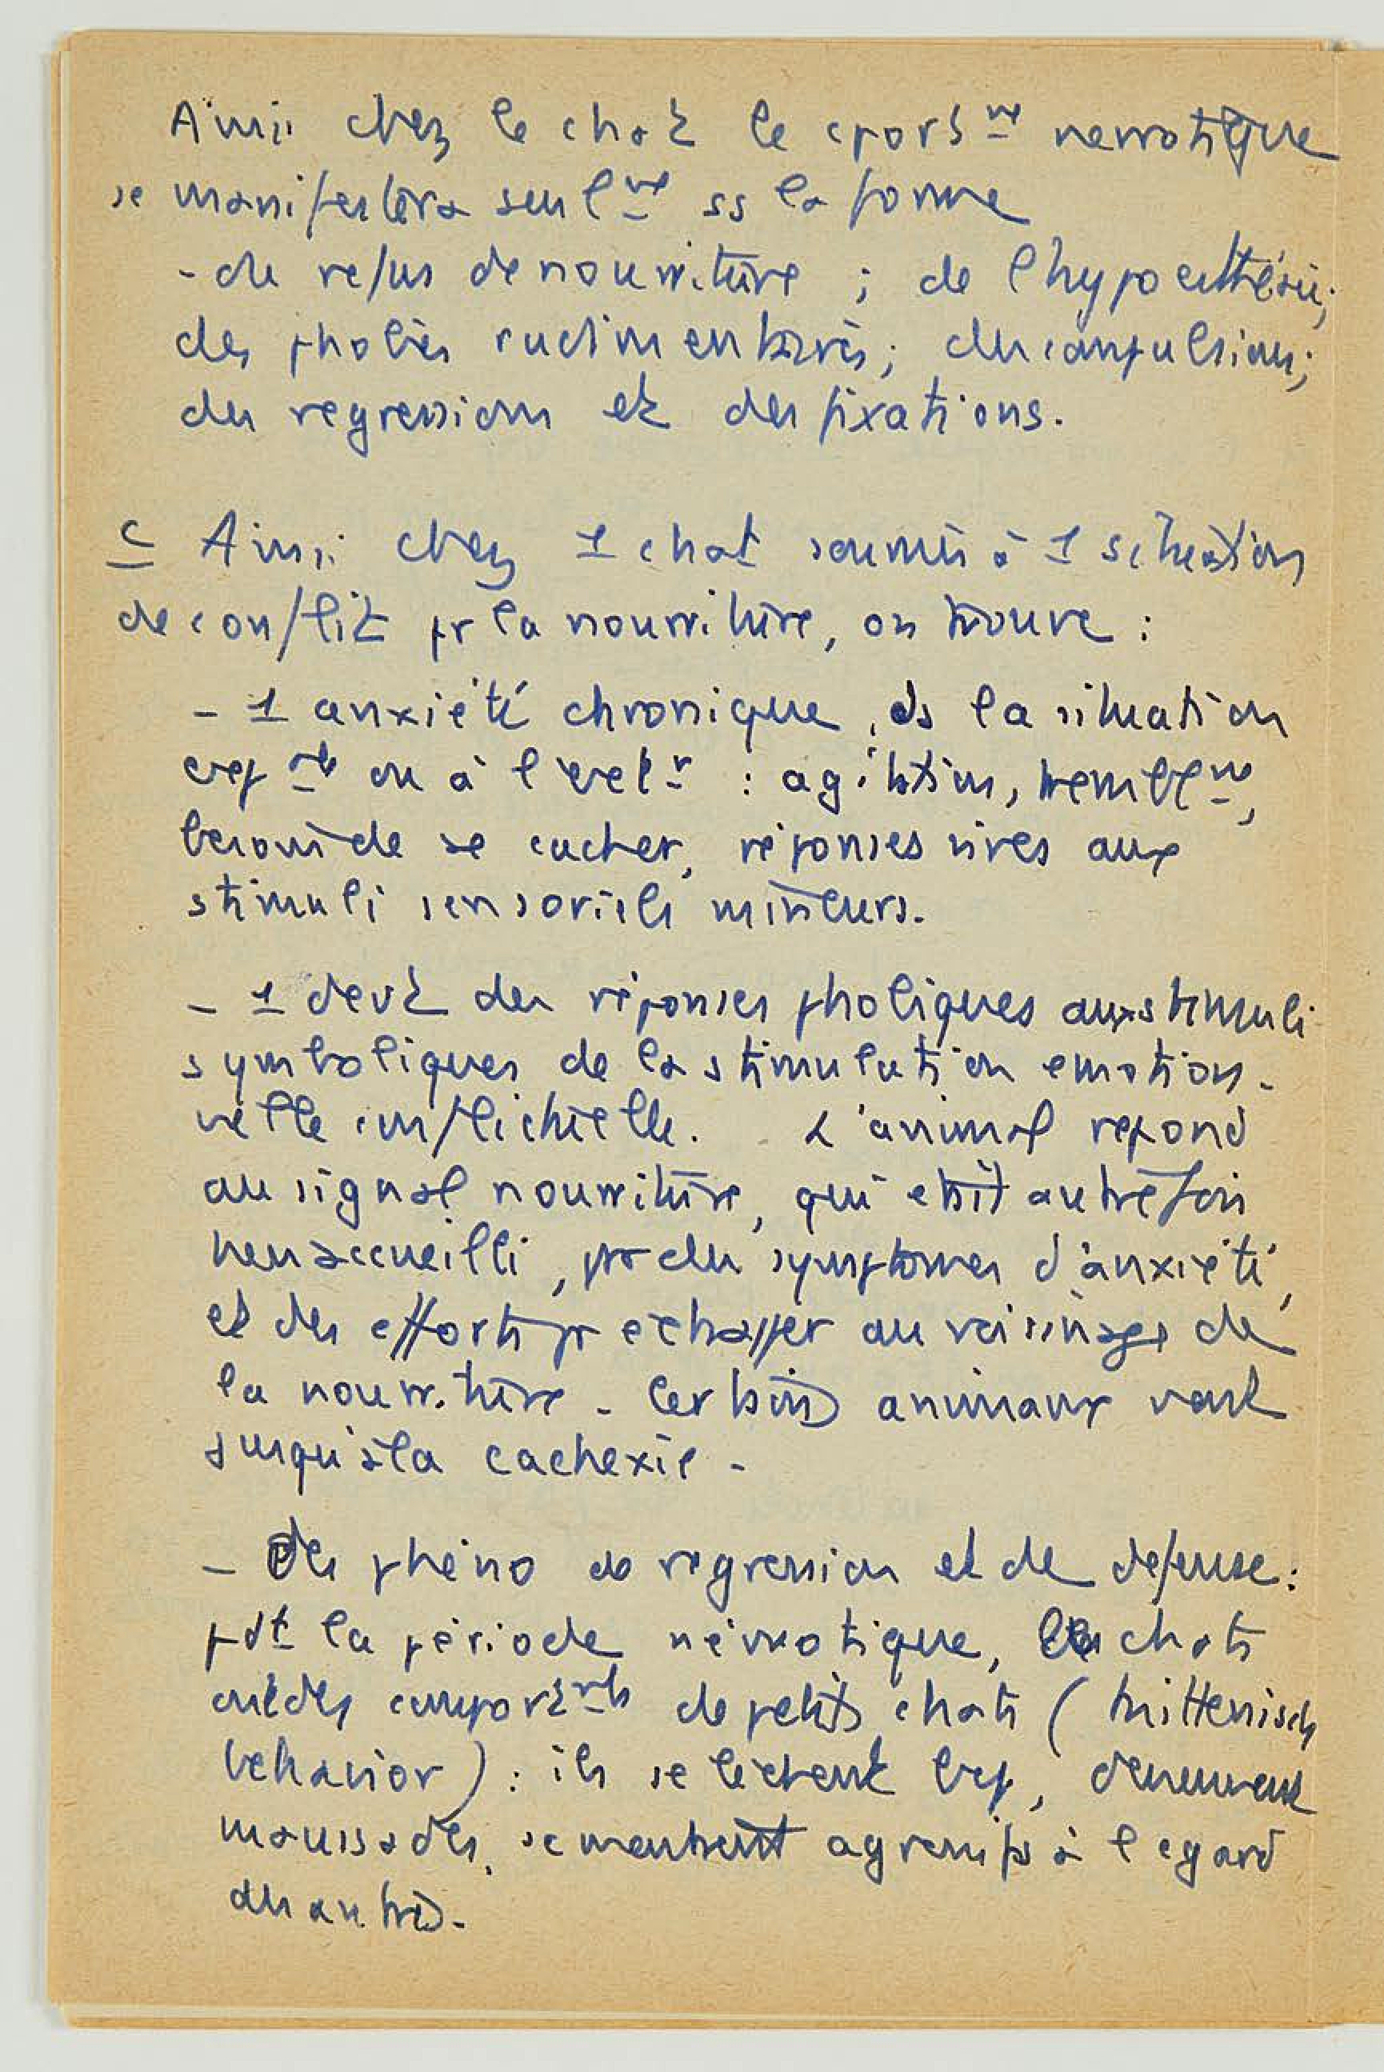 Ainsi chez le chat le cport^mt nevrotique
se manifestera seul^mt ss la forme
- du refus de nourriture ; de l'hyperesthésie;
des phobies rudimentaires; des compulsions;
des regressions et des fixations.
C Ainsi chez 1 chat soumis à 1 situation
de conflit pr la nourriture, on trouve :
- 1 anxiété chronique, ds la situation
exp^ale ou à l'ext^r : agitation, trembl^mt,
besoin de se cacher, réponses vives aux
stimuli sensoriels mineurs.
- 1 devt des réponses phobiques aux stimuli
symboliques de la stimulation emotion-
nelle conflictuelle. L'animal repond
au signal nourriture, qui etait autrefois
bien accueilli, par des symptomes d'anxiété,
et des efforts pr echapper au voisinage de
la nourriture - Certains animaux vont
jusqu'à la cachexie -
- Des phéno de regression et de defense :
pdt la période névrotique, les chats
ont des comport^mts de petits chats (kittenish
behavior) : ils se lèchent bcp, deviennent
maussades, se montrent agressifs à l'egard
des autres -